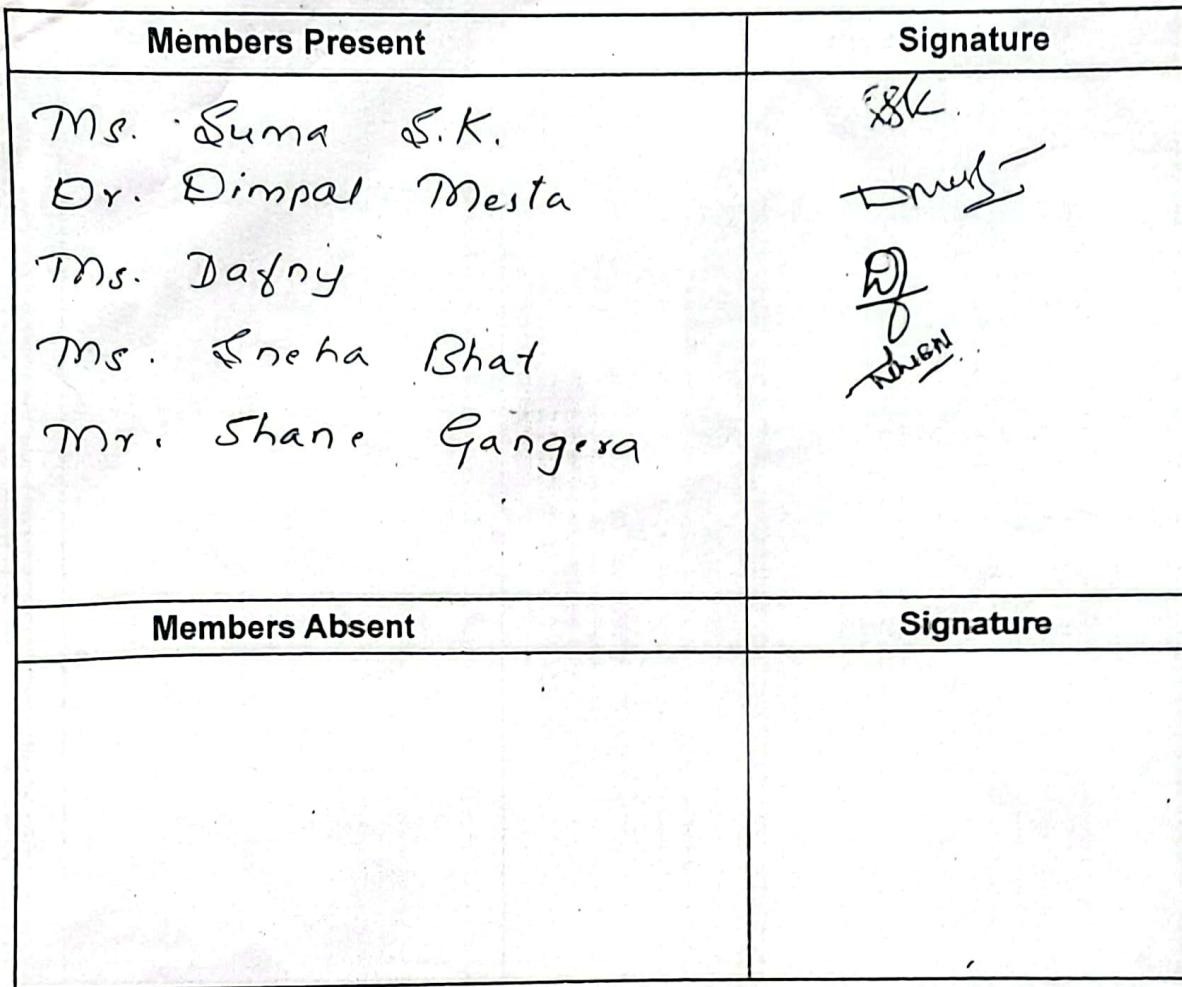 Members Present Signature
Ms. Suma S.K. SSK.
Dr. Dimpal Mesta
Ms. Dafny
Ms. Sneha Bhat
Mr. Shane Gangera
Members Absent Signature